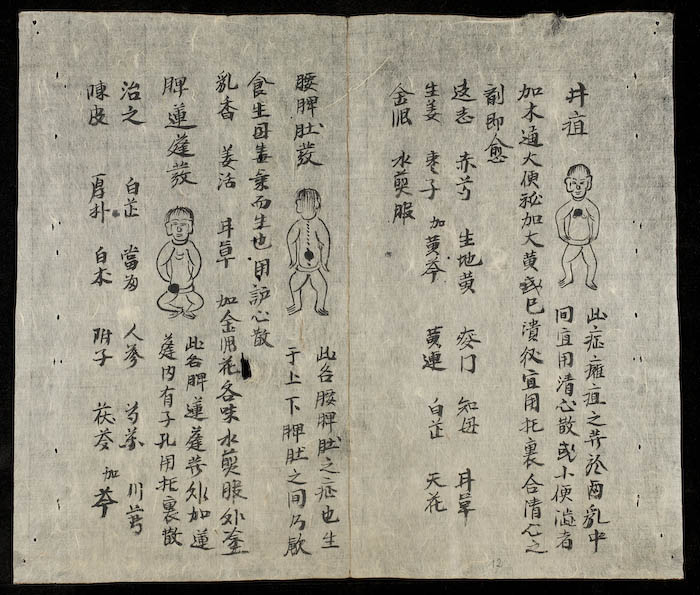 井疽
此症癰疽之發於兩乳中
间宜用清心散或小便澁者
加木通大便秘加大黄或已潰後宜用托裏合清心之
劑即愈
远志 赤芍 生地黄 麥门 知母 甘草
生姜 枣子 加黄芩 黄連 白芷 天花
金艮 水煎服
腰脾肚發
此名腰脾肚之症也生
于上下脾肚之间乃飲
食生 而生也用护心散
乳香 姜活 甘草 加金艮花各味水煎服外塗
脾蓮蓬發
此名脾蓮蓬發外如蓮
蓬内有子孔用托裏散
治之 白芷 當归 人参 芍药 川芎
陳皮 厚朴 白术 附子 茯苓 加芩
12